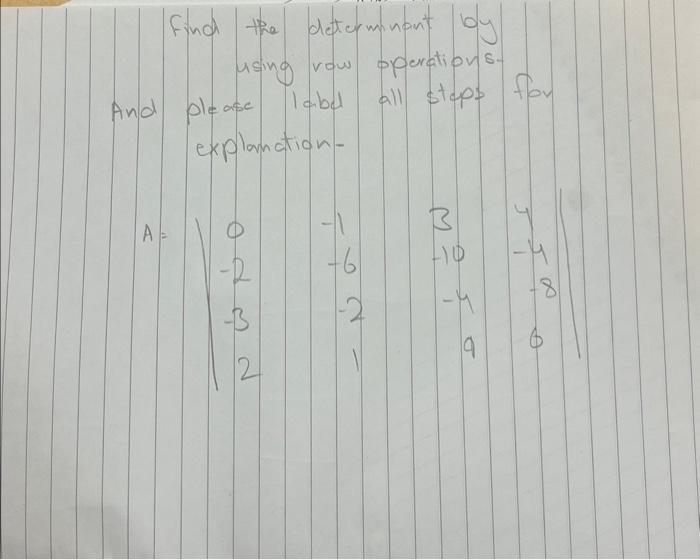 Find the determinant by
using row operations.
And please label all steps for
explanation-
A = | 0 -1 3 4 |
-2 -6 -10 -4
-3 -2 -4 -8
2 1 9 6